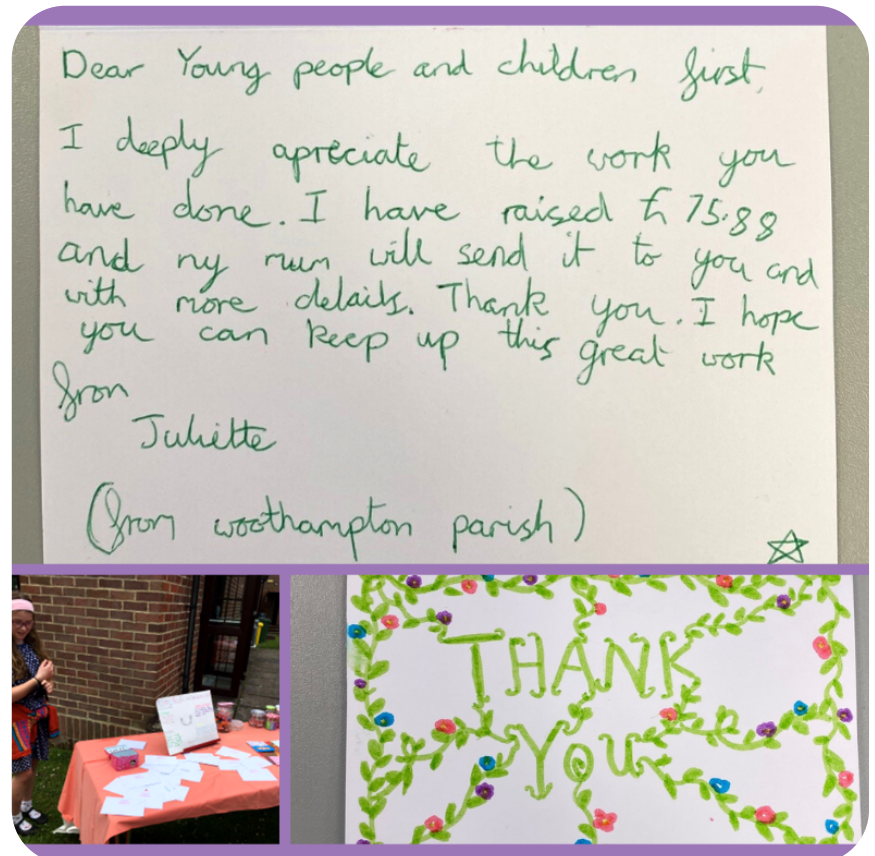 Dear Young people and children first,
I deeply apreciate the work you
have done. I have raised £75.88
and my mum will send it to you and
with more details. Thank you. I hope
you can keep up this great work
from
Juliette
(from woolhampton parish)
THANK
YOU